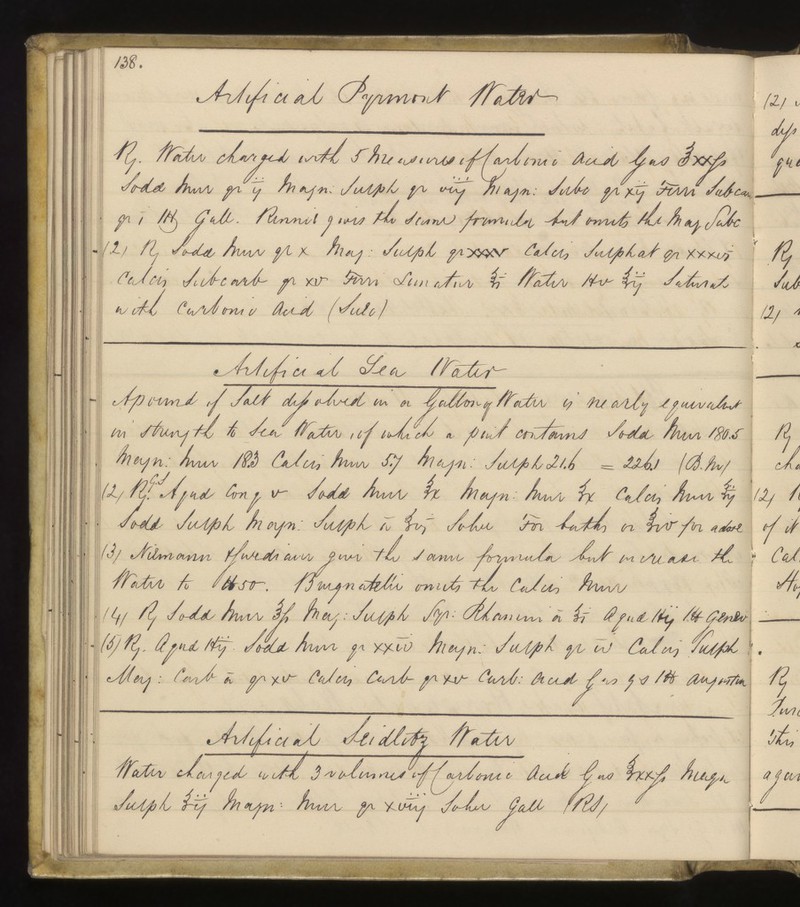 138.
Artificial Pyrmont Water
℞. Water charged with 5 Measures of Carbonic Acid Gas ℥xxſs
Sodæ Mur gr ij Magn: Sulph gr viij Magn: Subc gr xij Ferri Subcar
gr i Gall. Pinnis gives the same formula but omits the Mag Subc
(2) ℞ Sodæ Mur gr x Mag: Sulph gr xxxv Calcis Sulphat gr xxxvj
Calcis Subcarb gr xv Ferri ℥i Water ℥ij Saturat
with Carbonic Acid (Sulo)
Artificial Sea Water
A pound of Salt diſsolved in a Gallon of Water is nearly equivalent
in strength to Sea Water, of which a pint contains Sodæ Mur 180.5
Magn: Mur 18.3 Calcis Mur 5.7 Magn: Sulph 21.6 = 226.1 (B.M)
(2) ℞. Aquæ Cong v Sodæ Mur ℥x Magn: Mur ℥x Calcis Mur ℥ij
Sodæ Sulph Magn: Sulph a ℥vj Solve For baths or ℥iv for a dose
(3) Niemann Swediaur give the same formula but increase the
Water to ℔50. Brugnatelli omits the Calcis Mur
(4) ℞ Sodæ Mur ℥ſs Mag: Sulph Syr: Rhamni a ℥i Aquæ ℔ij Genev
(5) ℞. Aquæ ℔ij Sodæ Mur gr xxiv Magn: Sulph gr iv Calcis Sulph
Mag: Carb a gr xv Calcis Carb gr xv Carb: Acid Gas q s Augustin
Artificial Seidlitz Water
Water charged with 3 volumes of Carbonic Acid Gas ℥xxſs Magn
Sulph ʒij Magn: Mur gr xviij Solve Gall (RS)